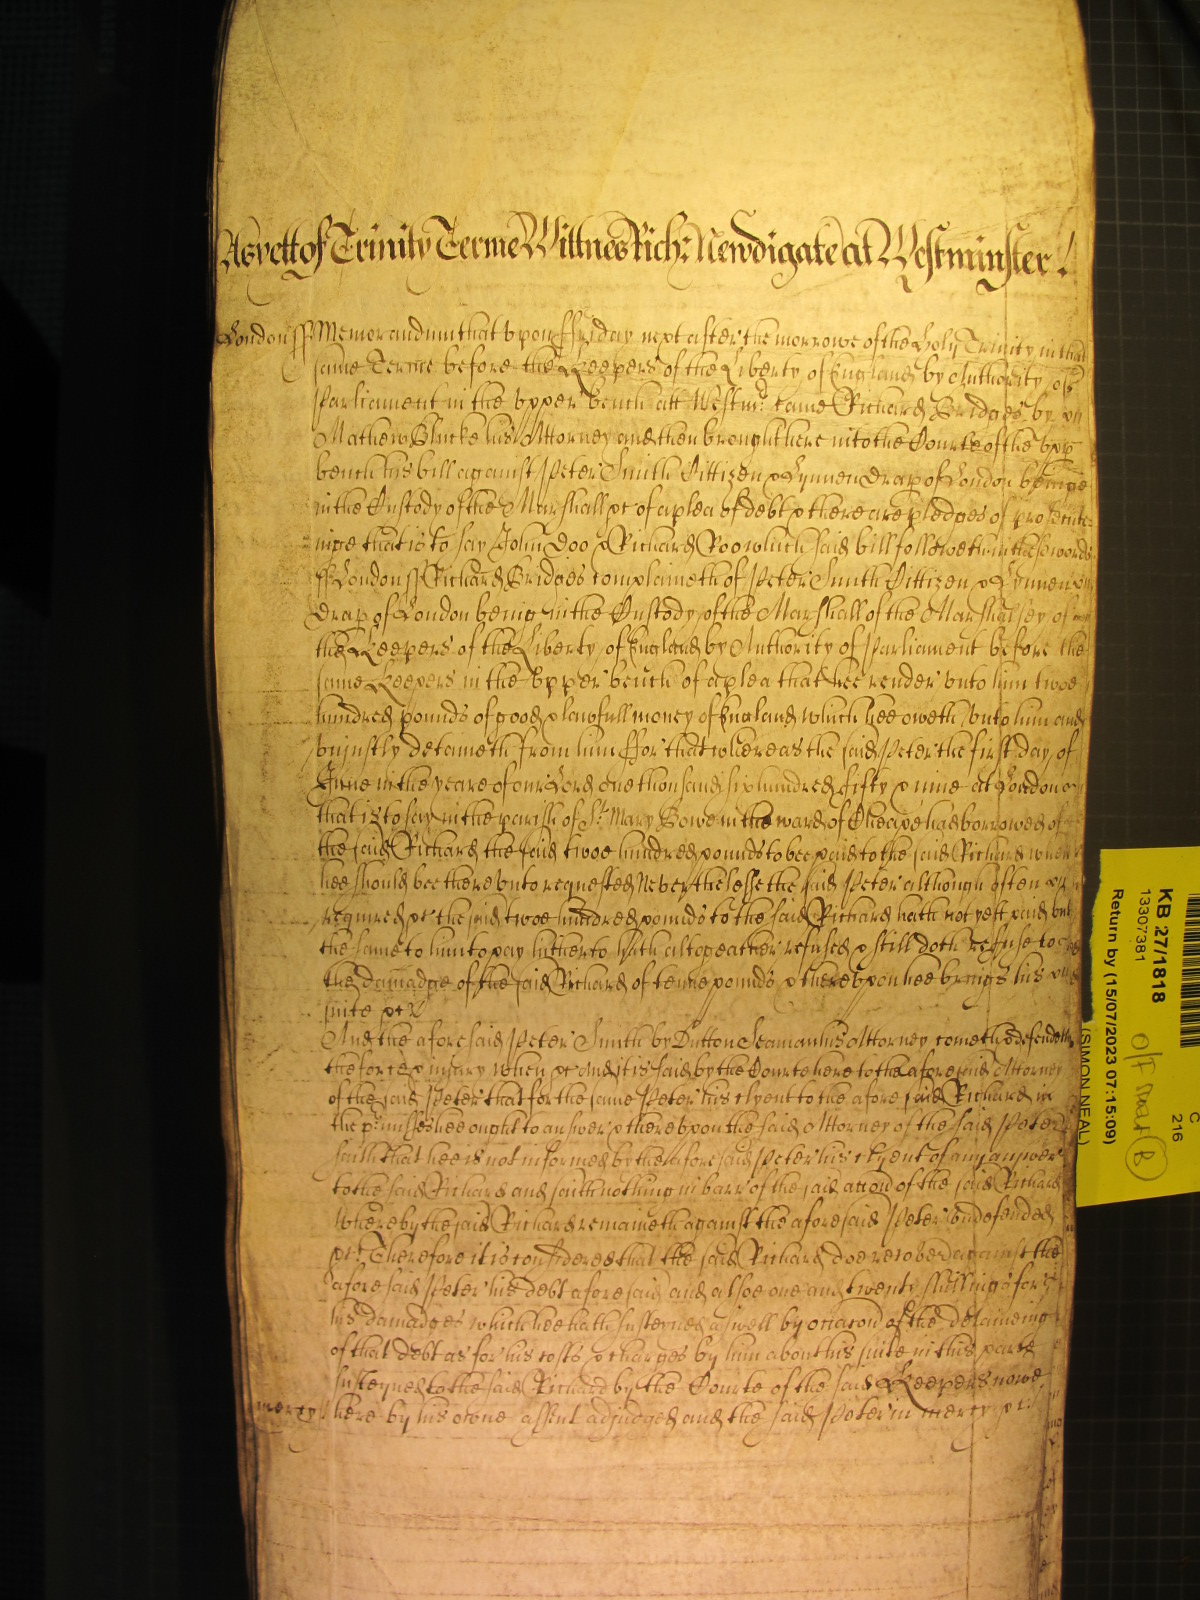 As yett of Trinity Terme Wittnes Rich: Newdigate at Westminster /
London ss Memorandum that vpon ffriday next after the morrowe of the Holy Trinity in that
same Terme before the Keepers of the Liberty of England by Authority of
Parliament in the vpper bench att Westmr. came Richard Bridges by
Mathew Blucke his Attorney and then brought here into the Courte of the vpp
bench his bill against Peter Smith Cittizen & Lynnen drap of London beinge
in the Custody of the Marshall &c of a plea of debt & there are pledges of prosecute
inge that is to say John Doo & Richard Roo which said bill followeth in these words
ss London ss Richard Bridges complaineth of Peter Smith Cittizen & Lynnen
drap of London being in the Custody of the Marshall of the Marshalsey of
the Keepers of the Liberty of England by Authority of Parliament before the
same Keepers in the vpper bench of a plea that hee render vnto him twoe
hundred pounds of good & lawfull money of England which hee oweth vnto him and
vniustly detaineth from him ffor that whereas the said Peter the first day of
June in the yeare of our Lord one thousand six hundred fifty & nine at London
that is to say in the parish of St. Mary Bowe in the ward of Cheape had borrowed of
the said Richard the said twoe hundred pounds to bee paid to the said Richard when
hee should bee there vnto requested Neverthelesse the said Peter although often
required &c the said twoe hundred pounds to the said Richard hath not yett paid but
the same to him to pay hitherto hath altogeather refused & still doth refuse to
the damadge of the said Richard of tenne pounds & therevpon hee brings his
suite &c
And the aforesaid Peter Smith by Dutton Seaman his Attorney cometh & defendeth
the force & iniury when &c And it is said by the Courte here to the aforesaid Attorney
of the said Peter that for the same Peter his clyent to the aforesaid Richard in
the pr:misses hee ought to answer & therevpon the said Attorney of the said Peter
saith that hee is not informed by the aforesaid Peter his clyent of any answer
to the said Richard and saith nothing in barr of the said accion of the said Richard
Whereby the said Richard remaineth against the aforesaid Peter vndefended
&c Therefore it is considered that the said Richard doe recover against the
aforesaid Peter his debt aforesaid and alsoe one and twenty shillings for
his damadges which hee hath susteyned aswell by occacion of the detaineing
of that debt as for his costs & charges by him about his suite in this parte
susteyned to the said Richard by the Courte of the said Keepers nowe
mercy here by his owne assent adjudged and the said Peter in mercy &c.
KB 27/1818
13307381
Return by (15/07/2023 07:15:09)
(SIMON NEAL)
C
216
B